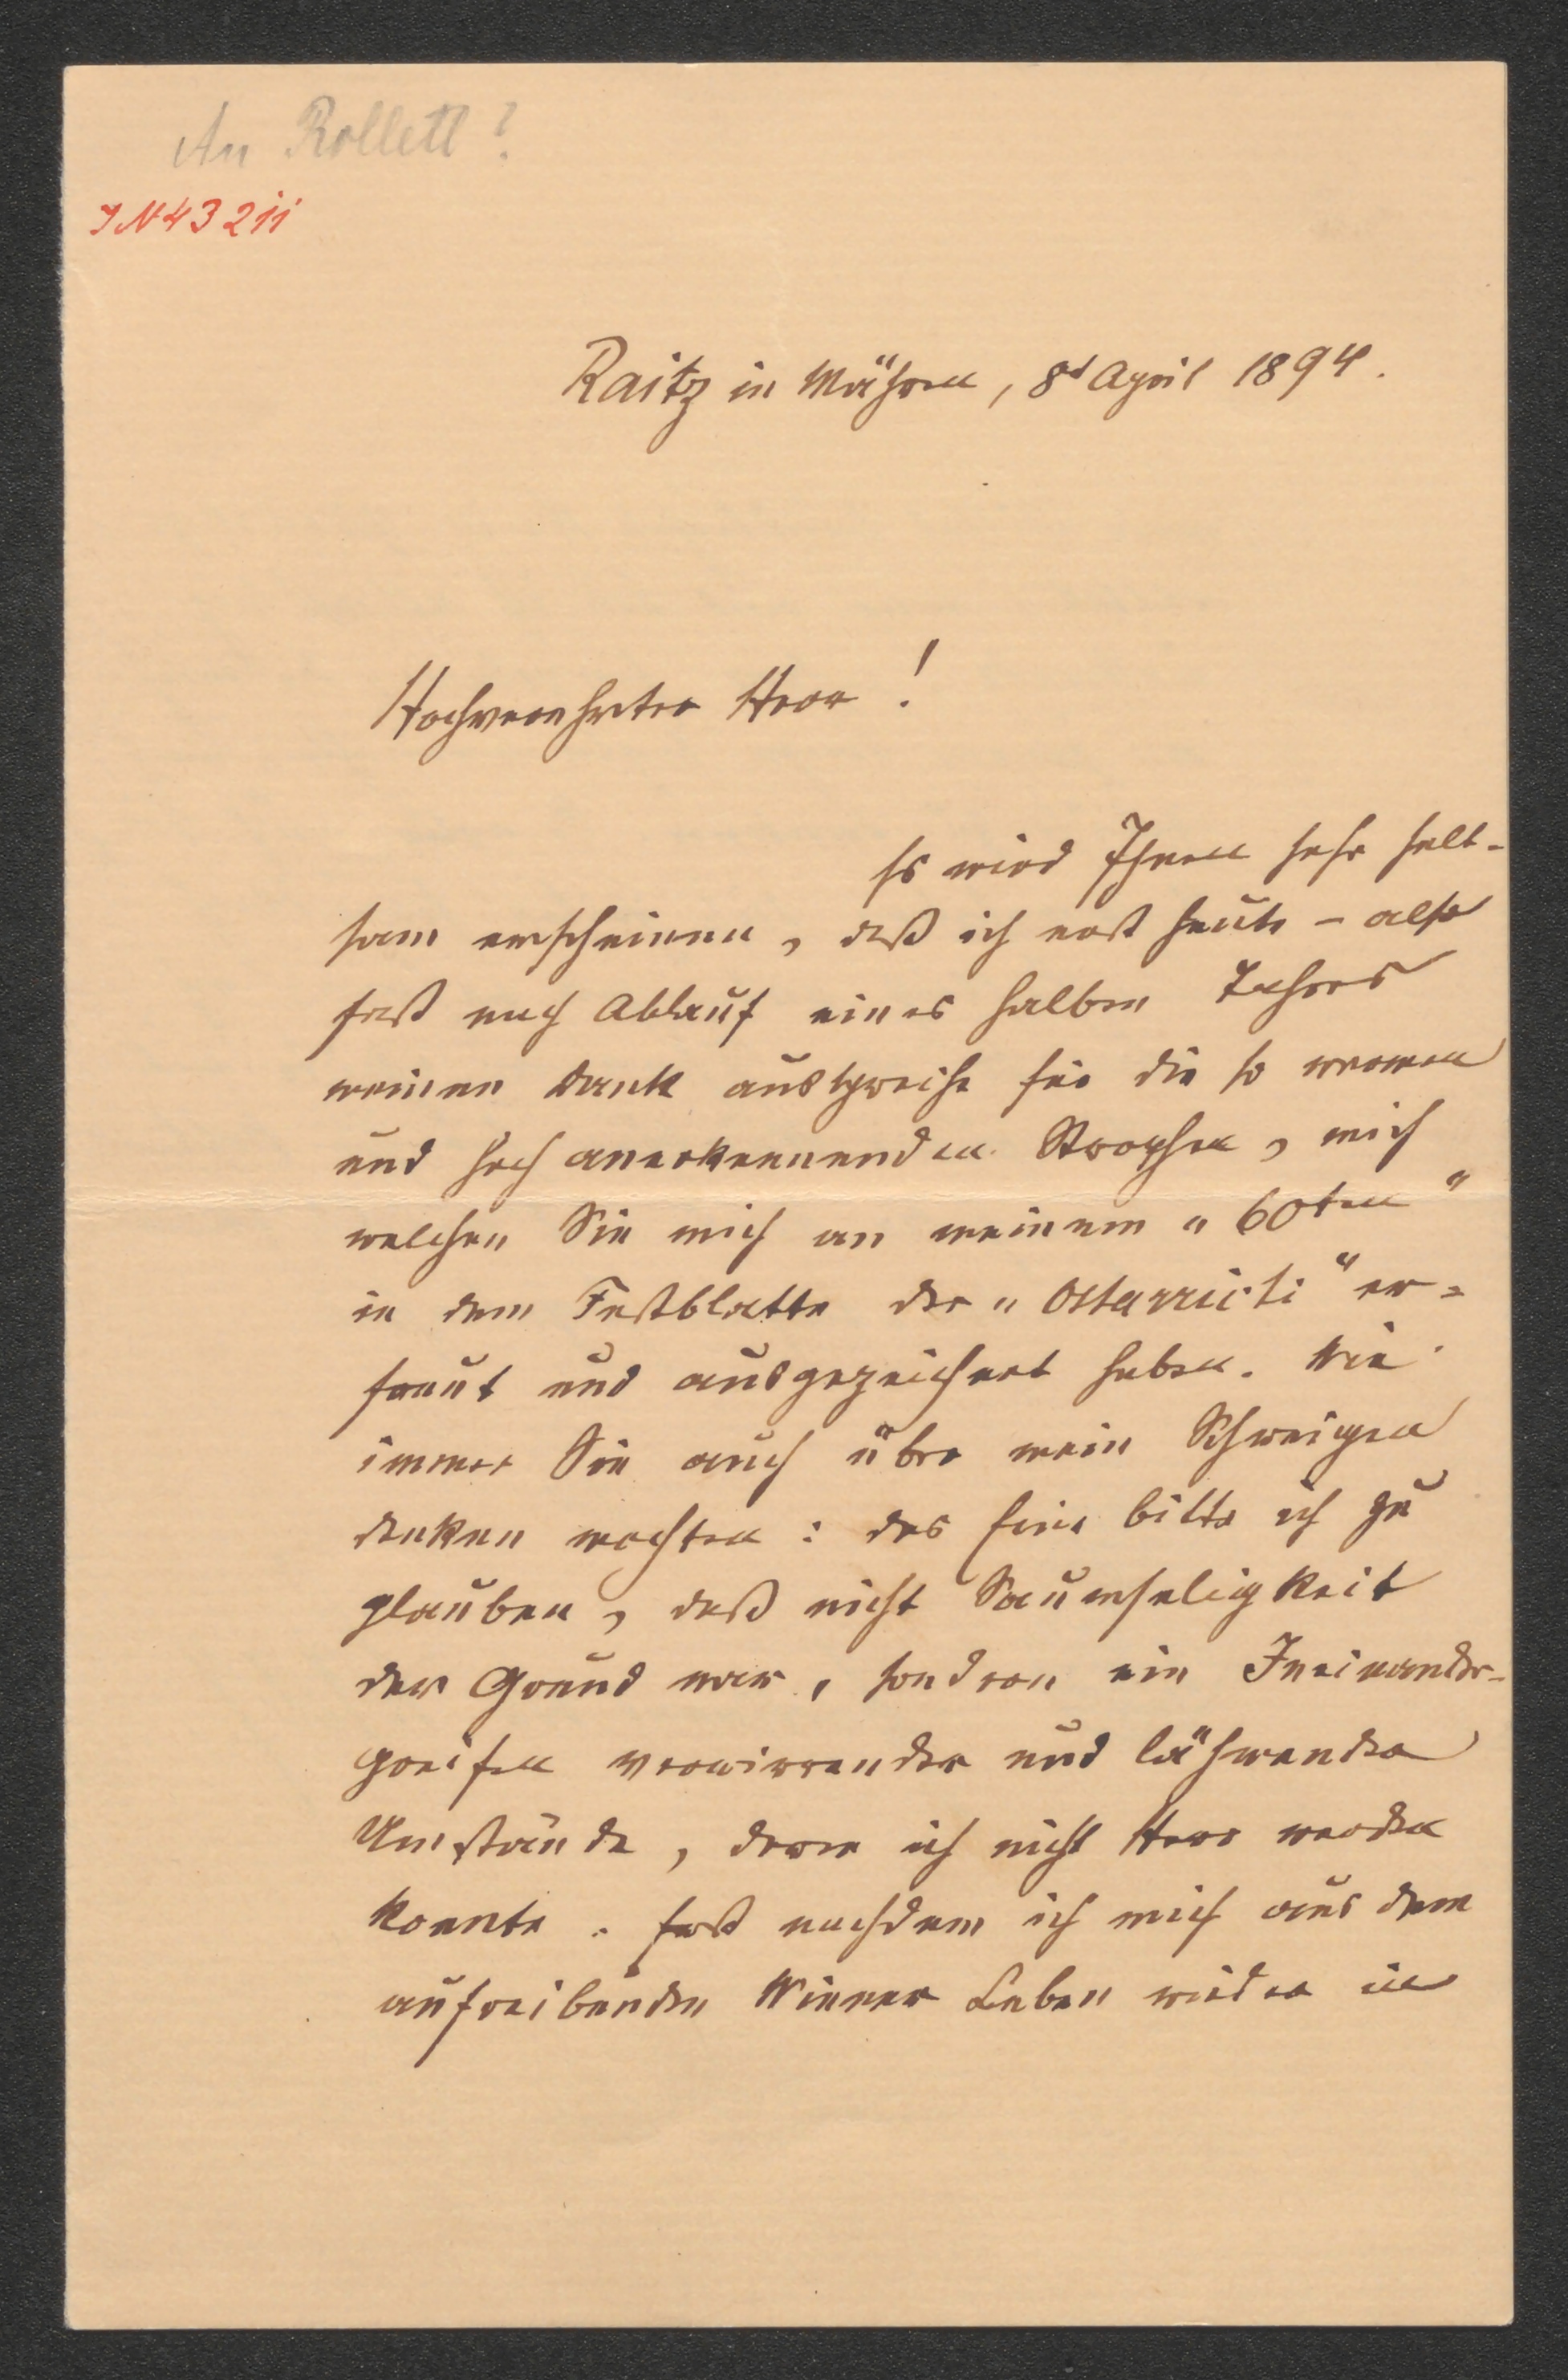 An Rollett?
IN 43 211
Raitz in Mähren, 8t April 1894.
Hochverehrter Herr!
Es wird Ihnen sehr selt-
sam erscheinen, daß ich erst heute – also
fast nach Ablauf eines halben Jahres
meinen Dank ausspreche für die so warmen
und hoch anerkennenden Strophen, mich
welchen Sie mich an meinem „60ten"
in dem Festblatte der „Ostarrichi" er-
freut und ausgezeichnet haben. Wie
immer Sie auch über mein Schweigen
denken mochten: das Eine bitte ich zu
glauben, daß nicht Saumseligkeit
der Grund war, sondern ein Ineinander-
greifen verwirrender und lähmender
Umstände, deren ich nicht Herr werden
konnte. Erst nachdem ich mich aus dem
aufreibenden Wiener Leben wieder in